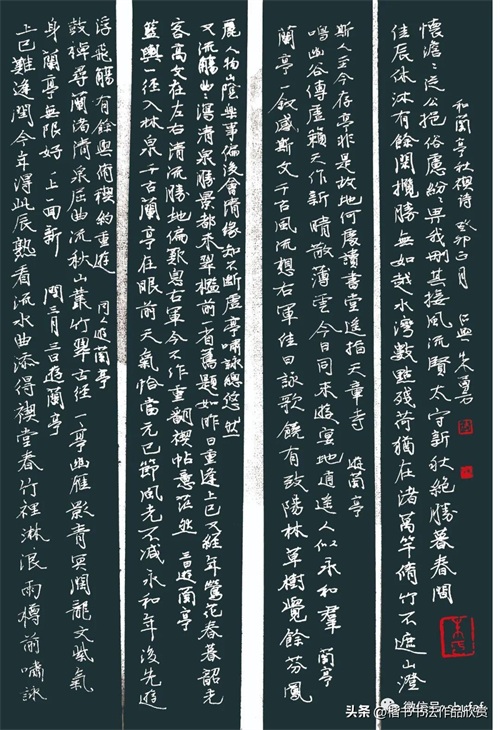 上巳難逢閏今年得此辰熟看流水曲添得禊堂春竹裡淋浪雨樽前嘯詠
身蘭亭無限好一上一回新 閏三月三日遊蘭亭
尋蘭渚清泉屈曲流秋山叢竹翠古徑一亭幽雁影青冥闊龍文紫氣
浮飛觴有餘興脩禊約重遊 同人遊蘭亭
籃輿一徑入林泉千古蘭亭在眼前天氣恰當元巳節風光不減永和年後先遊
客高文在左右清流勝地偏歎息右軍今不作重翻禊帖意茫然 三日遊蘭亭
又流觴曲澗清泉勝景都來翠檻前一省舊題如昨日重逢上巳又經年鶯花春暮韶光
麗人物山陰樂事偏後會情緣知不斷虛亭嘯詠總悠然
蘭亭一敘感斯文千古風流想右軍佳日詠歌饒有致陽林草樹覺餘芬鳳
鳴幽谷傳虛籟天作新晴散薄雲今日同來遊寔地逍遙人似永和羣 蘭亭
斯人至今存亭非是故地何處讀書堂遙指天章寺 遊蘭亭
佳辰休沐有餘閒攬勝無如越水灣數點殘荷猶在渚萬竿脩竹不遮山澄
懷澹從公挹俗慮紛紛畀我刪其接風流賢太守新秋絕勝暮春閒
和蘭亭秋禊詩 癸卯二月 吳興朱勇
微信号: shufaf
头条 @楷书书法作品欣赏